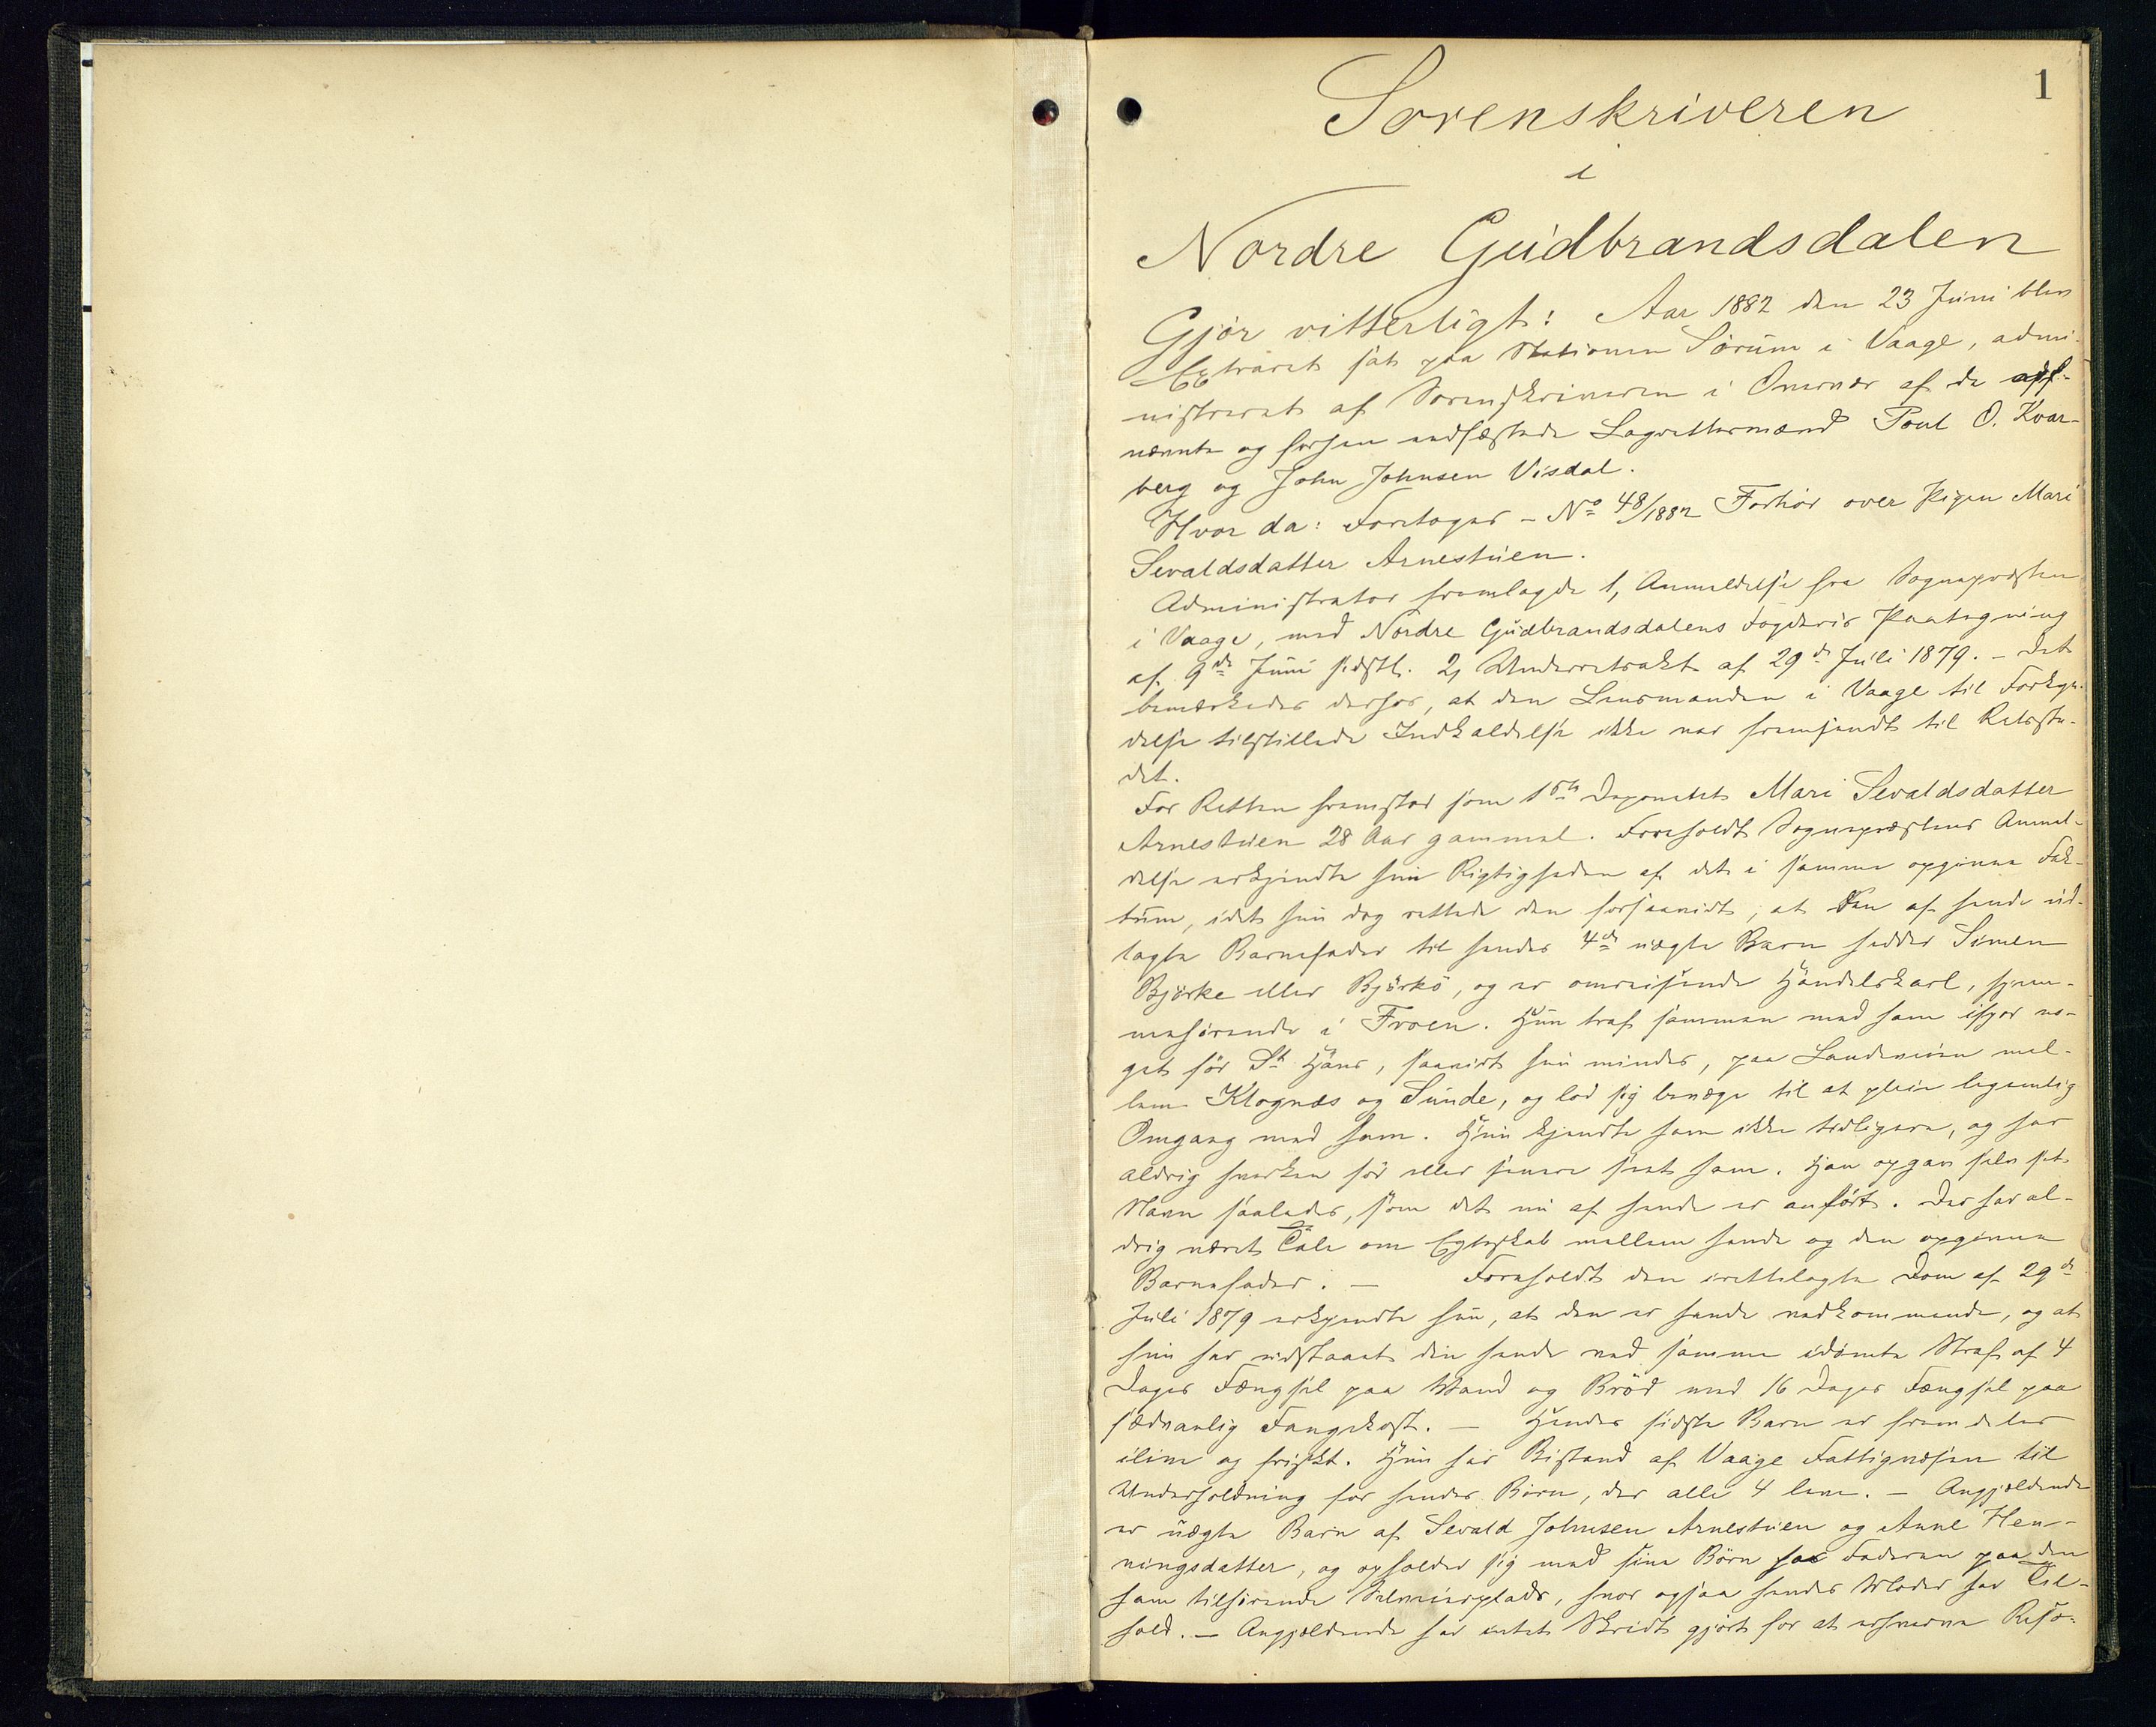 1
Sorenskriveren
i
Nordre Gudbrandsdalen
Gjør vitterligt: Aar 1882 den 23 Juni blev
Extraret sat paa Stationen Sørum i Vaage, admi-
nistreret af Sorenskriveren i Overvær af de opf-
nævnte og forhen eedfæstede Lagrettemænd Poul O. Kvar-
berg og John Johnsen Visdal.
Hvor da: Foretoges - No 48/1882 Forhør over Pigen Mari
Sevaldsdatter Arnestuen.
Administrator fremlagde 1, Anmeldelse fra Sognepresten
i Vaage, med Nordre Gudbrandsdalens Fogderis Paategning
af 9de Juni sidstl. 2, Underretsakt af 29de Juli 1879. - Det
bemærkedes derhos, at den Lensmanden i Vaage til Forkyn-
delse tilstillede Indkaldelse ikke var fremsendt til Retsste-
det.
For Retten fremstod som 1ste Deponent Mari Sevaldsdatter
Arnestuen 28 Aar gammel. Foreholdt Sogneprestens Anmel-
delse erkjendte hun Rigtigheden af det i samme opgivne Fak-
tum, idet hun dog rettede den forsaavidt, at den af hende ud-
lagte Barnefader til hendes 4de uægte Barn hedder Simen
Bjørke eller Bjørkø, og er omreisende Handelskarl, hjem-
mehørende i Froen. Hun traf sammen med ham ifjor no-
get før St Hans, saavidt hun mindes, paa Landeveien mel-
lem Klognæs og Sunde, og lod sig bevæge til at pleie legemlig
Omgang med ham. Hun kjendte ham ikke tidligere, og har
aldrig hverken før eller senere seet ham. Han opgav selv sit
Navn saaledes, som det nu af hende er anført. Der har al-
drig været Tale om Egteskab mellem hende og den opgivne
Barnefader. - Foreholdt den irettelagte Dom af 29de
Juli 1879 erkjendte hun, at den er hende vedkommende, og at
hun har udstaaet den hende ved samme idømte Straf af 4
Dages Fængsel paa Vand og Brød med 16 Dages Fængsel paa
sædvanlig Fangekost. - Hendes sidste Barn er fremdeles
ilive og friskt. Hun har Bistand af Vaage Fattigvæsen til
Underholdning for hendes Børn, der alle 4 leve. - Angjeldende
er uægte Barn af Sevald Johnsen Arnestuen og Anne Hen-
ningsdatter, og opholder sig med sine Børn hos Faderen paa den
ham tilhørende Selveierplads, hvor ogsaa hendes Moder har Til-
hold. - Angjeldende har intet Skridt gjørt for at erhverve Reso-